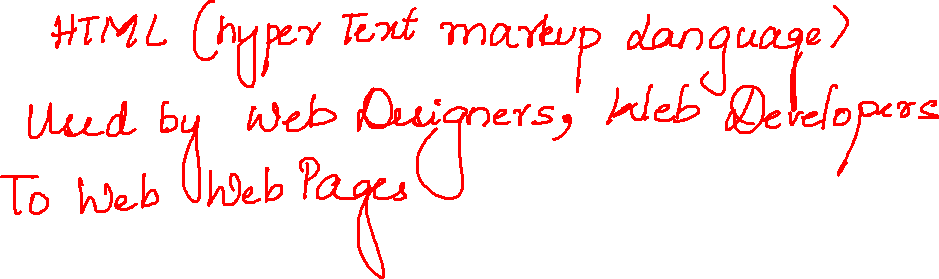 HTML (hyper Text markup Language)
Used by Web Designers, Web Developers
To Web Web Pages